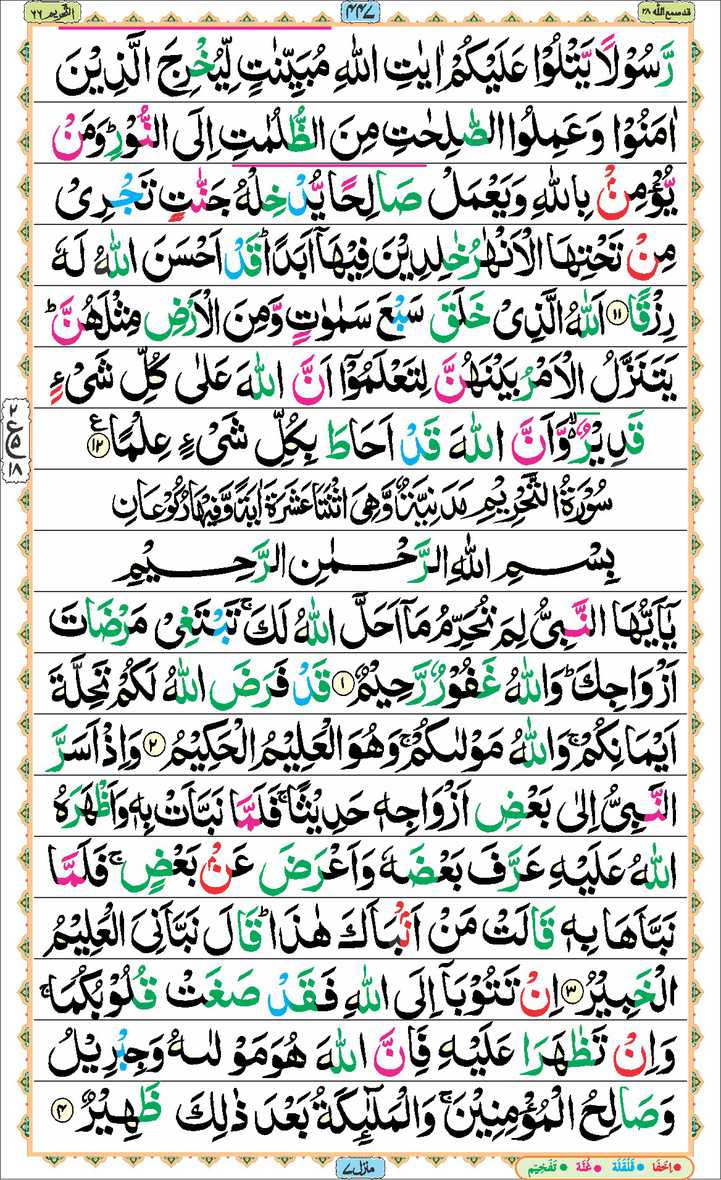 قد سمع الله ٢٨
٤٤٧
التحريم ٦٦
رَّسُوْلًا يَّتْلُوْا عَلَيْكُمْ اٰيٰتِ اللّٰهِ مُبَيِّنٰتٍ لِّيُخْرِجَ الَّذِيْنَ
اٰمَنُوْا وَعَمِلُوا الصّٰلِحٰتِ مِنَ الظُّلُمٰتِ اِلَى النُّوْرِؕ وَمَنْ
يُّؤْمِنْۢ بِاللّٰهِ وَيَعْمَلْ صَالِحًا يُّدْخِلْهُ جَنّٰتٍ تَجْرِىْ
مِنْ تَحْتِهَا الْاَنْهٰرُ خٰلِدِيْنَ فِيْهَاۤ اَبَدًاؕ قَدْ اَحْسَنَ اللّٰهُ لَهٗ
رِزْقًا ١١ اَللّٰهُ الَّذِىْ خَلَقَ سَبْعَ سَمٰوٰتٍ وَّمِنَ الْاَرْضِ مِثْلَهُنَّؕ
يَتَنَزَّلُ الْاَمْرُ بَيْنَهُنَّ لِتَعْلَمُوْۤا اَنَّ اللّٰهَ عَلٰى كُلِّ شَىْءٍ
قَدِيْرٌ ۙ وَّاَنَّ اللّٰهَ قَدْ اَحَاطَ بِكُلِّ شَىْءٍ عِلْمًا ١٢ ع
٢
ع ٥
١٨
سُوْرَةُ التَّحْرِيْمِ مَدَنِيَّةٌ وَّهِىَ اثْنَتَا عَشْرَةَ اٰيَةً وَّفِيْهَا رُكُوْعَانِ
بِسْمِ اللّٰهِ الرَّحْمٰنِ الرَّحِيْمِ
يٰۤاَيُّهَا النَّبِىُّ لِمَ تُحَرِّمُ مَاۤ اَحَلَّ اللّٰهُ لَكَۚ تَبْتَغِىْ مَرْضَاتَ
اَزْوَاجِكَؕ وَاللّٰهُ غَفُوْرٌ رَّحِيْمٌ ١ قَدْ فَرَضَ اللّٰهُ لَكُمْ تَحِلَّةَ
اَيْمَانِكُمْۚ وَاللّٰهُ مَوْلٰىكُمْۚ وَهُوَ الْعَلِيْمُ الْحَكِيْمُ ٢ وَاِذْ اَسَرَّ
النَّبِىُّ اِلٰى بَعْضِ اَزْوَاجِهٖ حَدِيْثًاۚ فَلَمَّا نَبَّاَتْ بِهٖ وَاَظْهَرَهُ
اللّٰهُ عَلَيْهِ عَرَّفَ بَعْضَهٗ وَاَعْرَضَ عَنْۢ بَعْضٍۚ فَلَمَّا
نَبَّاَهَا بِهٖ قَالَتْ مَنْ اَنْۢبَاَكَ هٰذَاؕ قَالَ نَبَّاَنِىَ الْعَلِيْمُ
الْخَبِيْرُ ٣ اِنْ تَتُوْبَاۤ اِلَى اللّٰهِ فَقَدْ صَغَتْ قُلُوْبُكُمَاۚ
وَاِنْ تَظٰهَرَا عَلَيْهِ فَاِنَّ اللّٰهَ هُوَ مَوْلٰىهُ وَجِبْرِيْلُ
وَصَالِحُ الْمُؤْمِنِيْنَۚ وَالْمَلٰٓئِكَةُ بَعْدَ ذٰلِكَ ظَهِيْرٌ ٤
منزل ٧
اخفا قلقلة غنة تفخيم